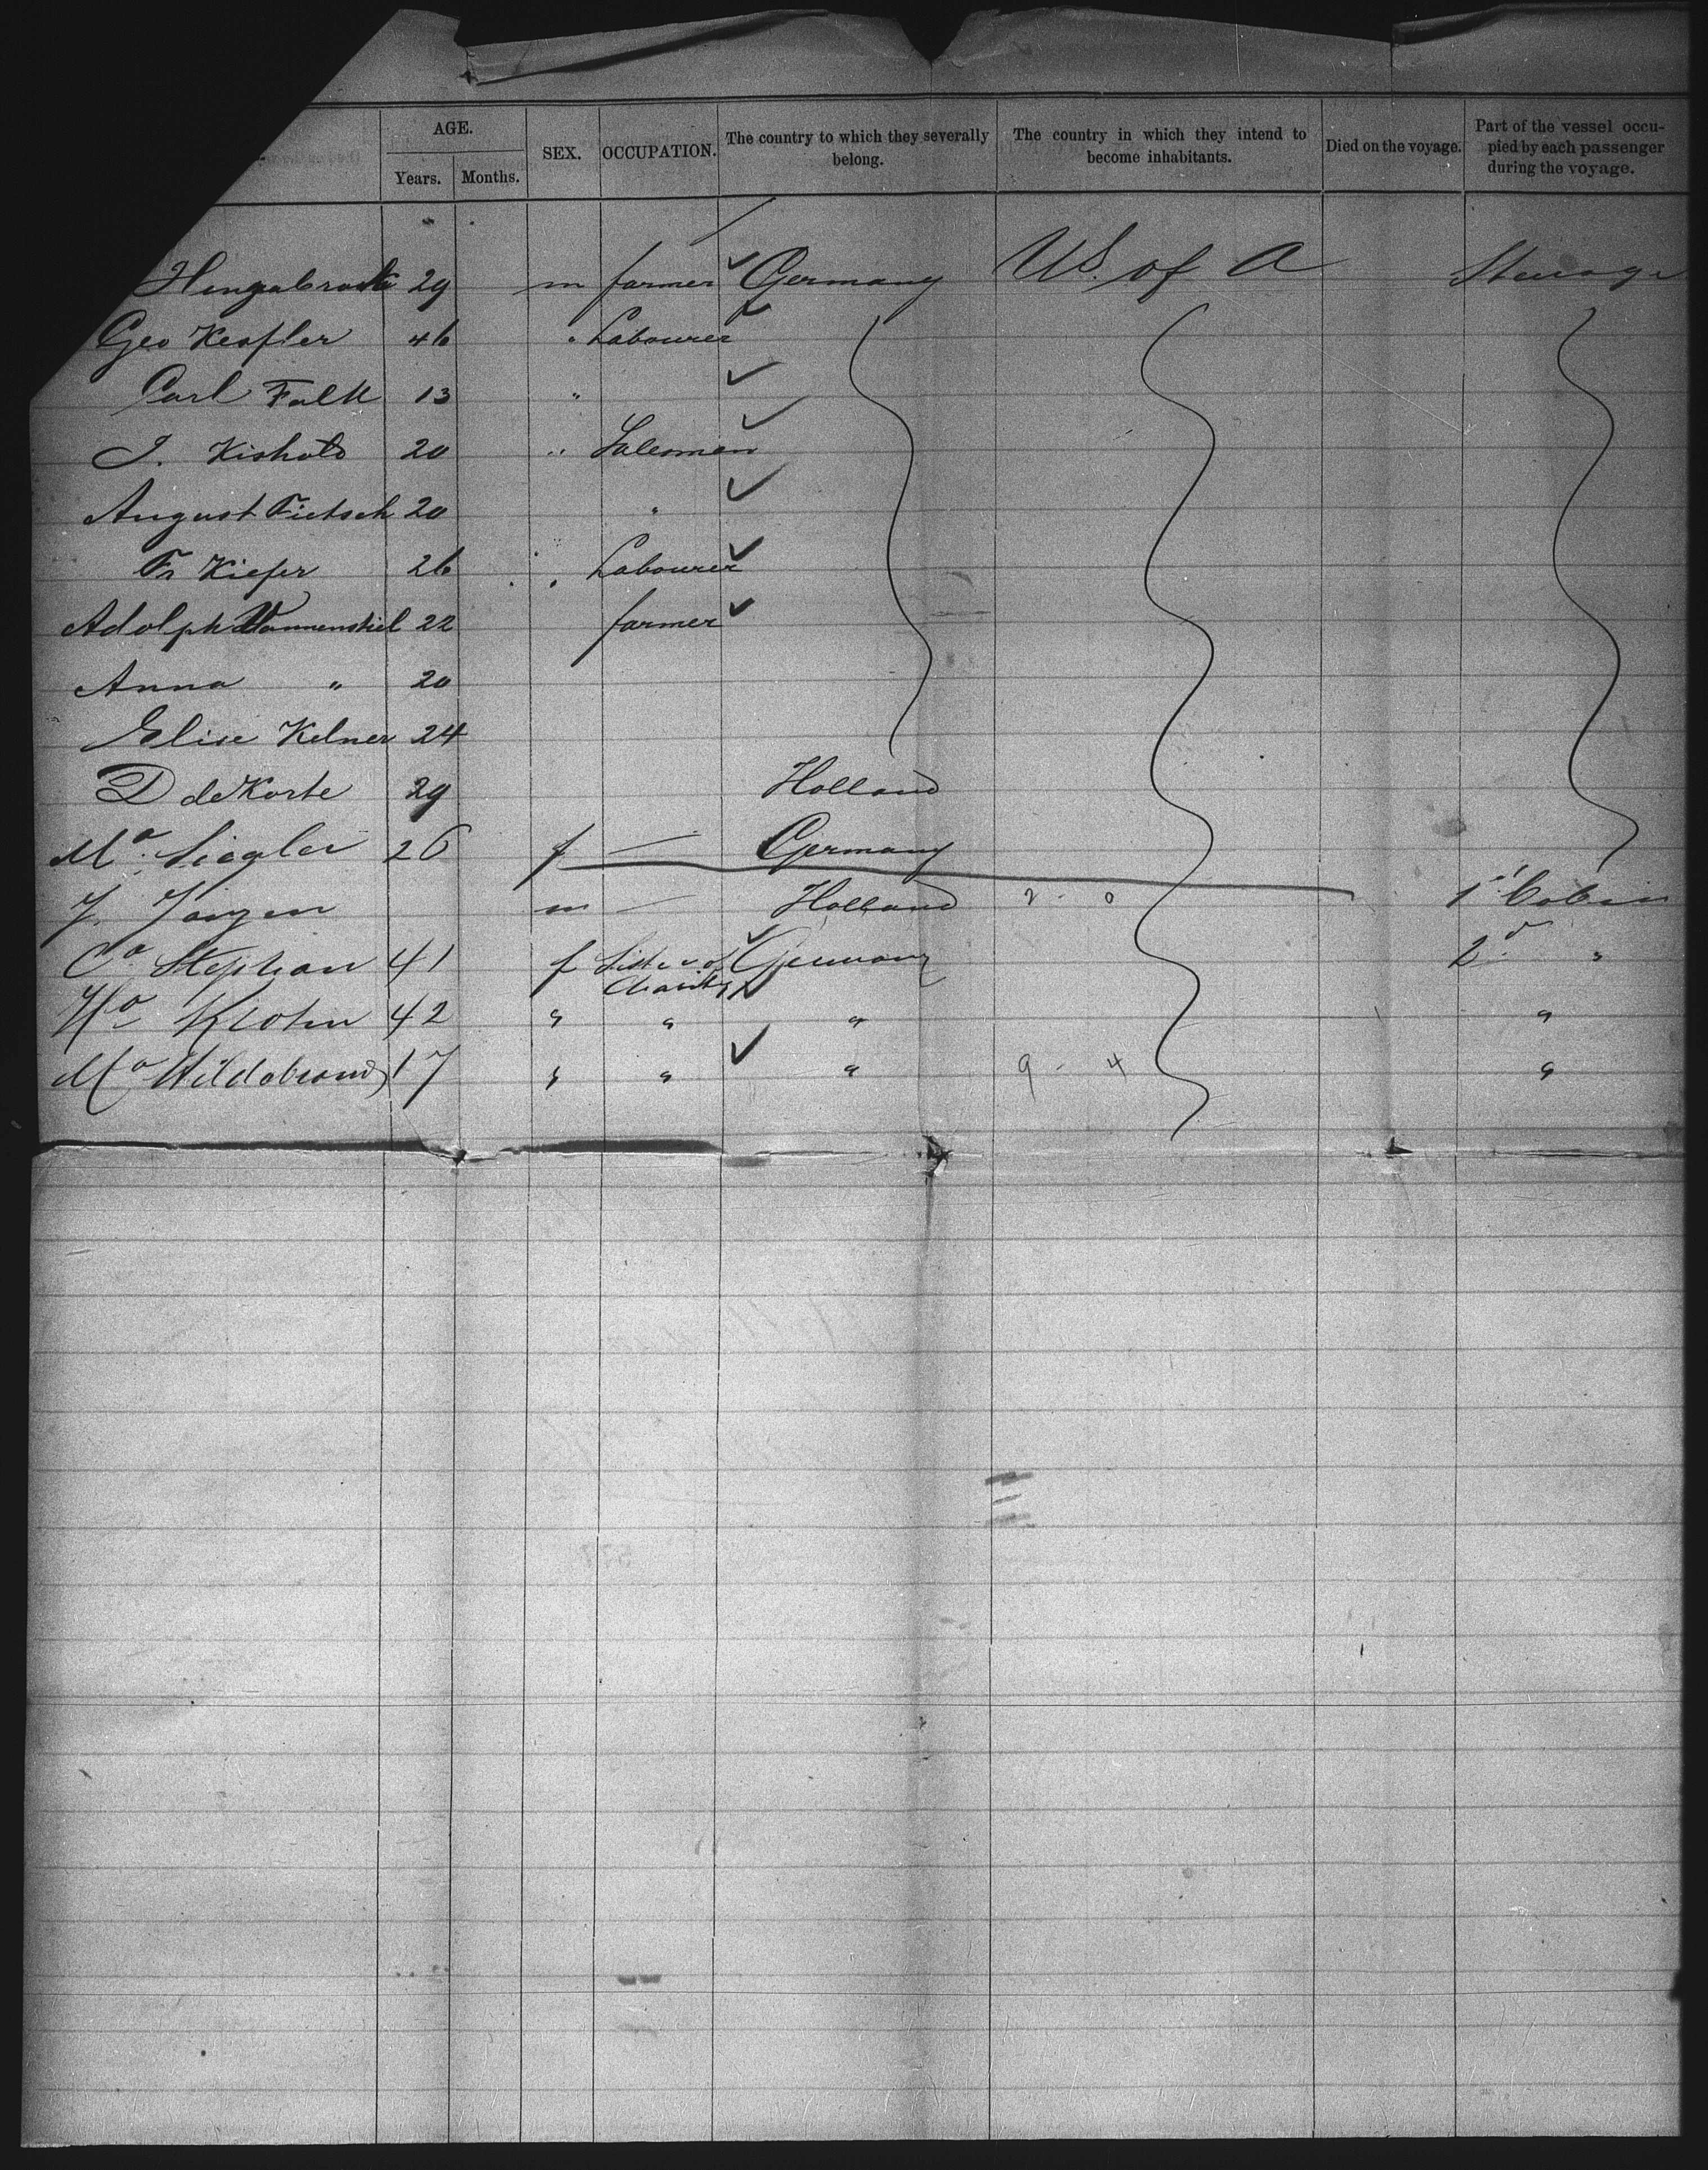 AGE.
Years. Months. SEX. OCCUPATION. The country to which they severally belong. The country in which they intend to become inhabitants. Died on the voyage. Part of the vessel occupied by each passenger during the voyage.
Hengabrock 29 m farmer Germany U.S. of A Steerage
Geo Kessler 46 " Labourer
Carl Falk 13 "
J. Kishold 20 " Salesman
August Fietsch 20 "
Fr Kiefer 26 " Labourer
Adolph Wannenstiel 22 farmer
Anna " 20
Elise Kelner 24
D de Korte 29 Holland
Ma. Siegler 26 f — Germany
J. Jansen m — Holland 2 - 0 1st Cabin
Ca. Stephan 41 f Sister of Charity Germany 2d "
Ha. Klohn 42 " " " "
Ma Hildebrand 17 " " " 9 - 4 "